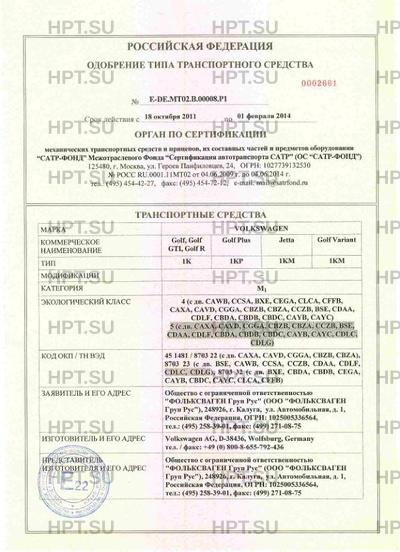 РОССИЙСКАЯ ФЕДЕРАЦИЯ
ОДОБРЕНИЕ ТИПА ТРАНСПОРТНОГО СРЕДСТВА
0002661
№ E-DE.MT02.B.00008.P1
Срок действия с 18 октября 2011 по 01 февраля 2014
ОРГАН ПО СЕРТИФИКАЦИИ
механических транспортных средств и прицепов, их составных частей и предметов оборудования
"САТР-ФОНД" Межотраслевого Фонда "Сертификация автотранспорта САТР" (ОС "САТР-ФОНД")
125480, г. Москва, ул. Героев Панфиловцев, 24, ОГРН: 1027739132530
№ РОСС RU.0001.11МТ02 от 04.06.2009 г. до 04.06.2014 г.
тел. (495) 454-42-27, факс: (495) 454-72-12, e-mail: mail@satrfond.ru
ТРАНСПОРТНЫЕ СРЕДСТВА
МАРКА VOLKSWAGEN
КОММЕРЧЕСКОЕ НАИМЕНОВАНИЕ Golf, Golf GTI, Golf R Golf Plus Jetta Golf Variant
ТИП 1K 1KP 1KM 1KM
МОДИФИКАЦИИ
КАТЕГОРИЯ M1
ЭКОЛОГИЧЕСКИЙ КЛАСС 4 (с дв. CAWB, CCSA, BXE, CEGA, CLCA, CFFB,
CAXA, CAVD, CGGA, CBZB, CBZA, CCZB, BSE, CDAA,
CDLF, CBDA, CBDB, CBDC, CAYB, CAYC)
5 (с дв. CAXA, CAVD, CGGA, CBZB, CBZA, CCZB, BSE,
CDAA, CDLF, CBDA, CBDB, CBDC, CAYB, CAYC, CDLC,
CDLG)
КОД ОКП / ТН ВЭД 45 1481 / 8703 22 (с дв. CAXA, CAVD, CGGA, CBZB, CBZA),
8703 23 (с дв. BSE, CAWB, CCSA, CCZB, CDAA, CDLF,
CDLC, CDLG), 8703 32 (с дв. BXE, CBDA, CBDB, CEGA,
CAYB, CBDC, CAYC, CLCA, CFFB)
ЗАЯВИТЕЛЬ И ЕГО АДРЕС Общество с ограниченной ответственностью
"ФОЛЬКСВАГЕН Груп Рус" (ООО "ФОЛЬКСВАГЕН
Груп Рус"), 248926, г. Калуга, ул. Автомобильная, д. 1,
Российская Федерация, ОГРН: 1025005336564,
тел.: (495) 258-39-01, факс: (499) 271-08-75
ИЗГОТОВИТЕЛЬ И ЕГО АДРЕС Volkswagen AG, D-38436, Wolfsburg, Germany
тел. / факс: +49 (0) 800-8-655-792-436
ПРЕДСТАВИТЕЛЬ ИЗГОТОВИТЕЛЯ И ЕГО АДРЕС Общество с ограниченной ответственностью
"ФОЛЬКСВАГЕН Груп Рус" (ООО "ФОЛЬКСВАГЕН
Груп Рус"), 248926, г. Калуга, ул. Автомобильная, д. 1,
Российская Федерация, ОГРН: 1025005336564,
тел.: (495) 258-39-01, факс: (499) 271-08-75
E22
HPT.SU